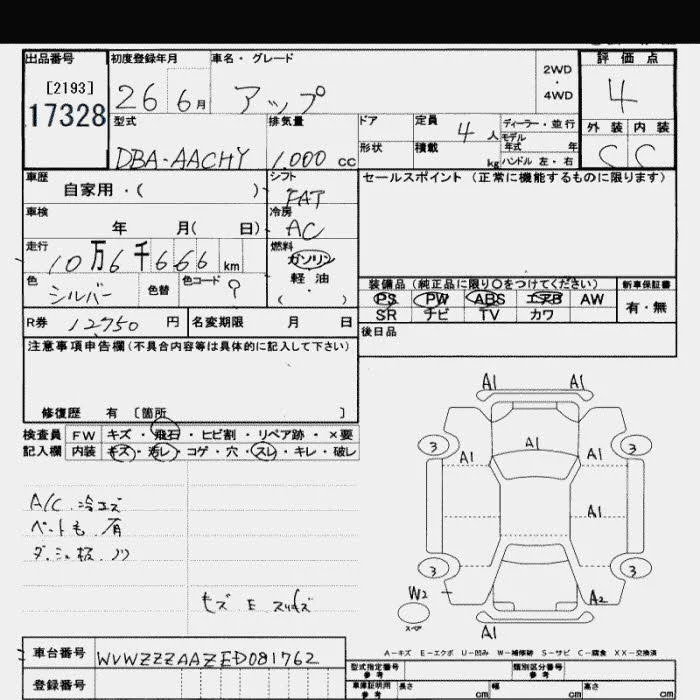 出品番号 初度登録年月 車名・グレード 2WD・4WD 評価点
[2193]
17328 26 6月 アップ 4
型式 排気量 ドア 定員 4人 ディーラー・並行 外装 内装
モデル年式 年
DBA-AACHY 1,000cc 形状 積載 kg ハンドル 左・右 C C
車歴 シフト セールスポイント(正常に機能するものに限ります)
自家用・( ) FAT
車検 冷房
年 月( 日) AC
走行 燃料
10万6千666km ガソリン
色 色替 色コード 軽油
シルバー ・( ) 装備品(純正品に限り○をつけてください) 新車保証書
PS PW ABS エアB AW 有・無
SR ナビ TV カワ
R券 12750円 名変期限 月 日 後日品
注意事項申告欄(不具合内容等は具体的に記入して下さい)
修復歴 有 〔箇所 〕
検査員 FW キズ・飛石・ヒビ割・リペア跡・×要
記入欄 内装 キズ・汚レ・コゲ・穴・スレ・キレ・破レ
A1 A1
3 A1 3
A1 A1
A1
A/C 冷エズ
3 3
W2 A2
スペア
A1
A-キズ E-エクボ U-凹み W-補修跡 S-サビ C-腐食 XX-交換済
車台番号 WVWZZZAAZED081762
型式指定番号 類別区分番号
登録番号 参考 参考
車庫証明用 長さ cm 幅 cm 高さ cm
参考